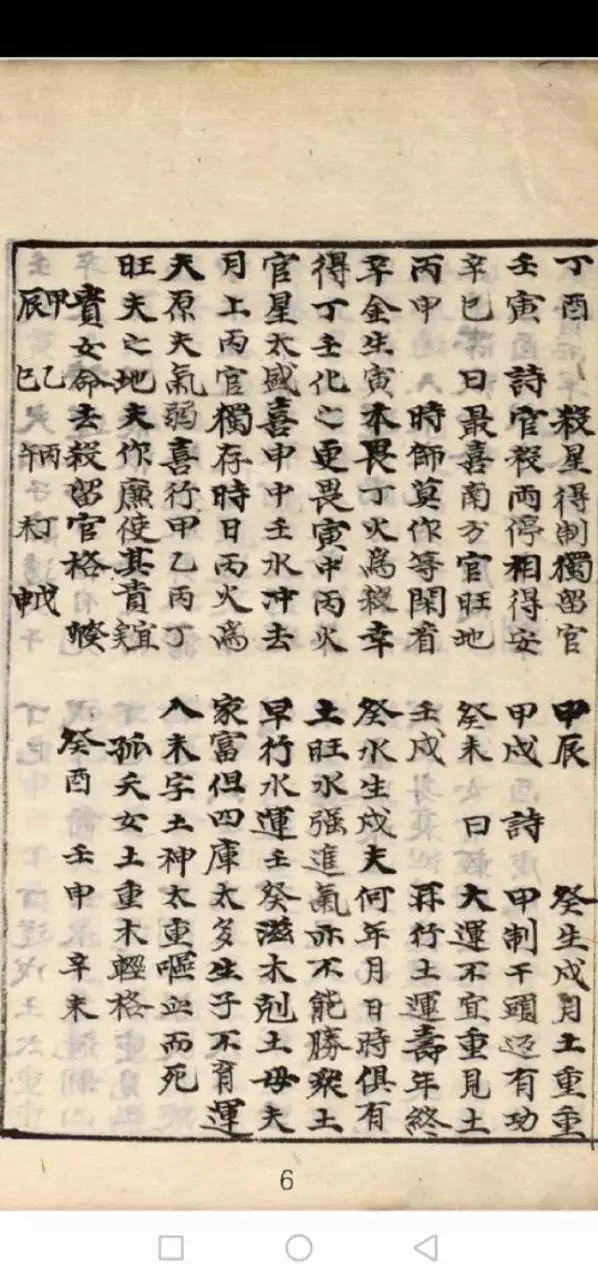 丁酉 殺星得制獨留官
壬寅 詩官殺兩停相得安
辛巳 曰最喜南方官旺地
丙申 時師莫作等閑看
辛金生寅本畏丁火為殺幸
得丁壬化之更畏寅中丙火
官星太盛喜申中壬水沖去
月上丙官獨存時日丙火為
夫原夫氣弱喜行甲乙丙丁
旺夫之地夫作廉使其貴宜
貴女命去殺留官格
甲辰 乙巳 丙午 丁未 戊申
甲辰 癸生戌月土重重
甲戌 詩 甲制干頭有功
癸未 曰 大運不宜重見土
壬戌 再行土運壽年終
癸水生戌夫何年月日時俱有
土旺水强進氣亦不能勝衆土
早行水運壬癸滋木剋土母夫
家富但四庫太多生子不育運
入未字土神太重嘔血而死
孤夭女土重木輕格
癸酉 壬申 辛未
6